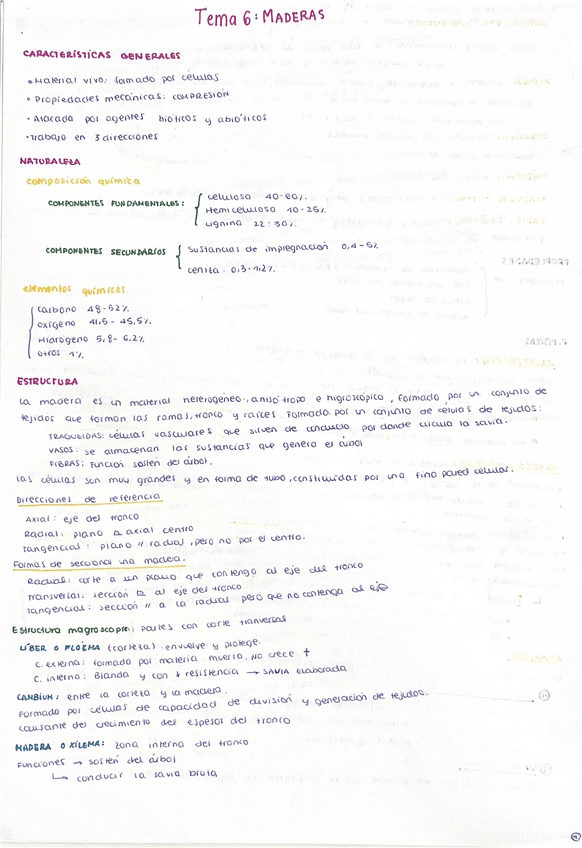 Tema 6: MADERAS
CARACTERÍSTICAS GENERALES
• Material vivo: formado por células
• Propiedades mecánicas: COMPRESIÓN
• Atacada por agentes bióticos y abióticos
• Trabajo en 3 direcciones
NATURALEZA
composición química
COMPONENTES FUNDAMENTALES: { celulosa 40-60%.
Hemicelulosa 10-25%
Lignina 22-30%.
COMPONENTES SECUNDARIOS { Sustancias de impregnación 0,4-5%
ceniza: 0,3-1,2%.
elementos químicos
{ carbono 48-52%
oxígeno 41,5-45,5%.
Hidrógeno 5,8-6,2%.
otros 1%.
ESTRUCTURA
La madera es un material heterogéneo, anisótropo e higroscópico, formado por un conjunto de
tejidos que forman las ramas, tronco y raíces. Formada por un conjunto de células de tejidos:
TRAQUEIDAS: células vasculares que silven de conducto por donde circula la savia.
VASOS: se almacenan las sustancias que genera el árbol
FIBRAS: Función sostén del árbol.
Las células son muy grandes y en forma de tubo, constituidas por una fina pared celular.
Direcciones de referencia
Axial: eje del tronco
Radial: plano ⊥ axial centro
tangencial: plano // radial, pero no por el centro.
Formas de seccionar una madera.
Radial: corte a un plano que contenga al eje del tronco
Transversal: sección ⊥ al eje del tronco
tangencial: sección // a la radial pero que no contenga al eje
Estructura magroscopie: partes con corte tranversal
LÍBER O FLOEMA (corteza): envuelve y protege.
C. externa: formada por materia muerta. NO crece †
C. interna: Blanda y con ↓ resistencia → SAVIA elaborada
CAMBIUM: entre la corteza y la madera.
Formada por células de capacidad de división y generación de tejidos.
causante del crecimiento del espesor del tronco
MADERA O XILEMA: zona interna del tronco
Funciones → sostén del árbol
↳ conducir la savia bruta
①